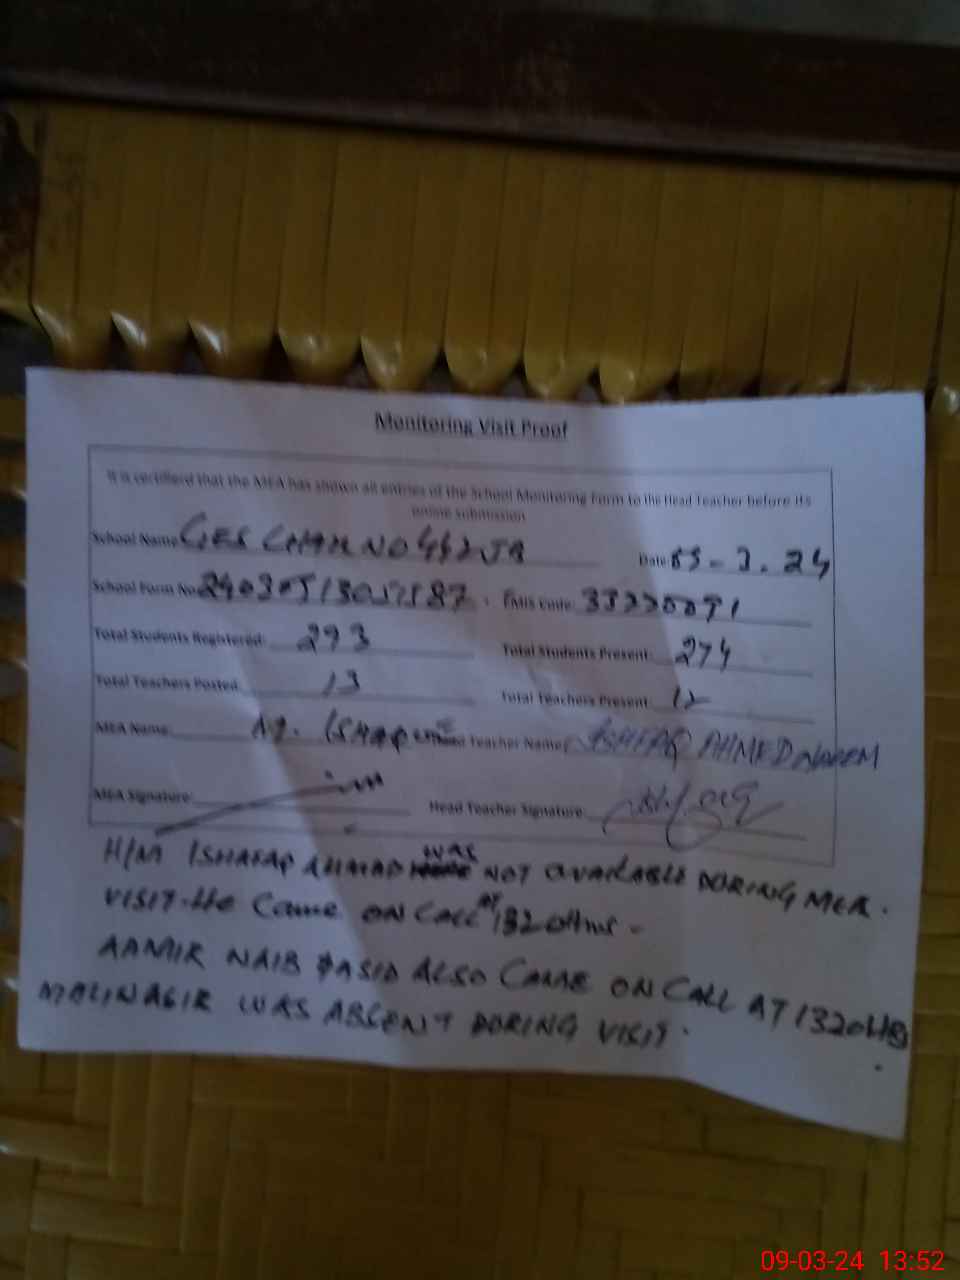 Monitoring Visit Proof
It is certified that the MEA has shown all entries of the School Monitoring Form to the Head Teacher before its
online submission
School Name: GES CHAK NO 442 JB Date: -3.24
School Form No. EMIS Code:
Total Students Registered: 293 Total Students Present: 274
Total Teachers Posted: 13 Total Teachers Present: 12
MEA Name: ISHAQ Head Teacher Name: ISHFAQ AHMED
MEA Signature: Head Teacher Signature:
H/M ISHAFAQ AHMAD WAS NOT AVAILABLE DORING MEA.
VISIT. He Came ON CALL AT 1320Hrs.
AAMIR NAIB ALSO CAME ON CALL AT 1320HRS
WAS ABSENT DORING VISIT.
09-03-24 13:52